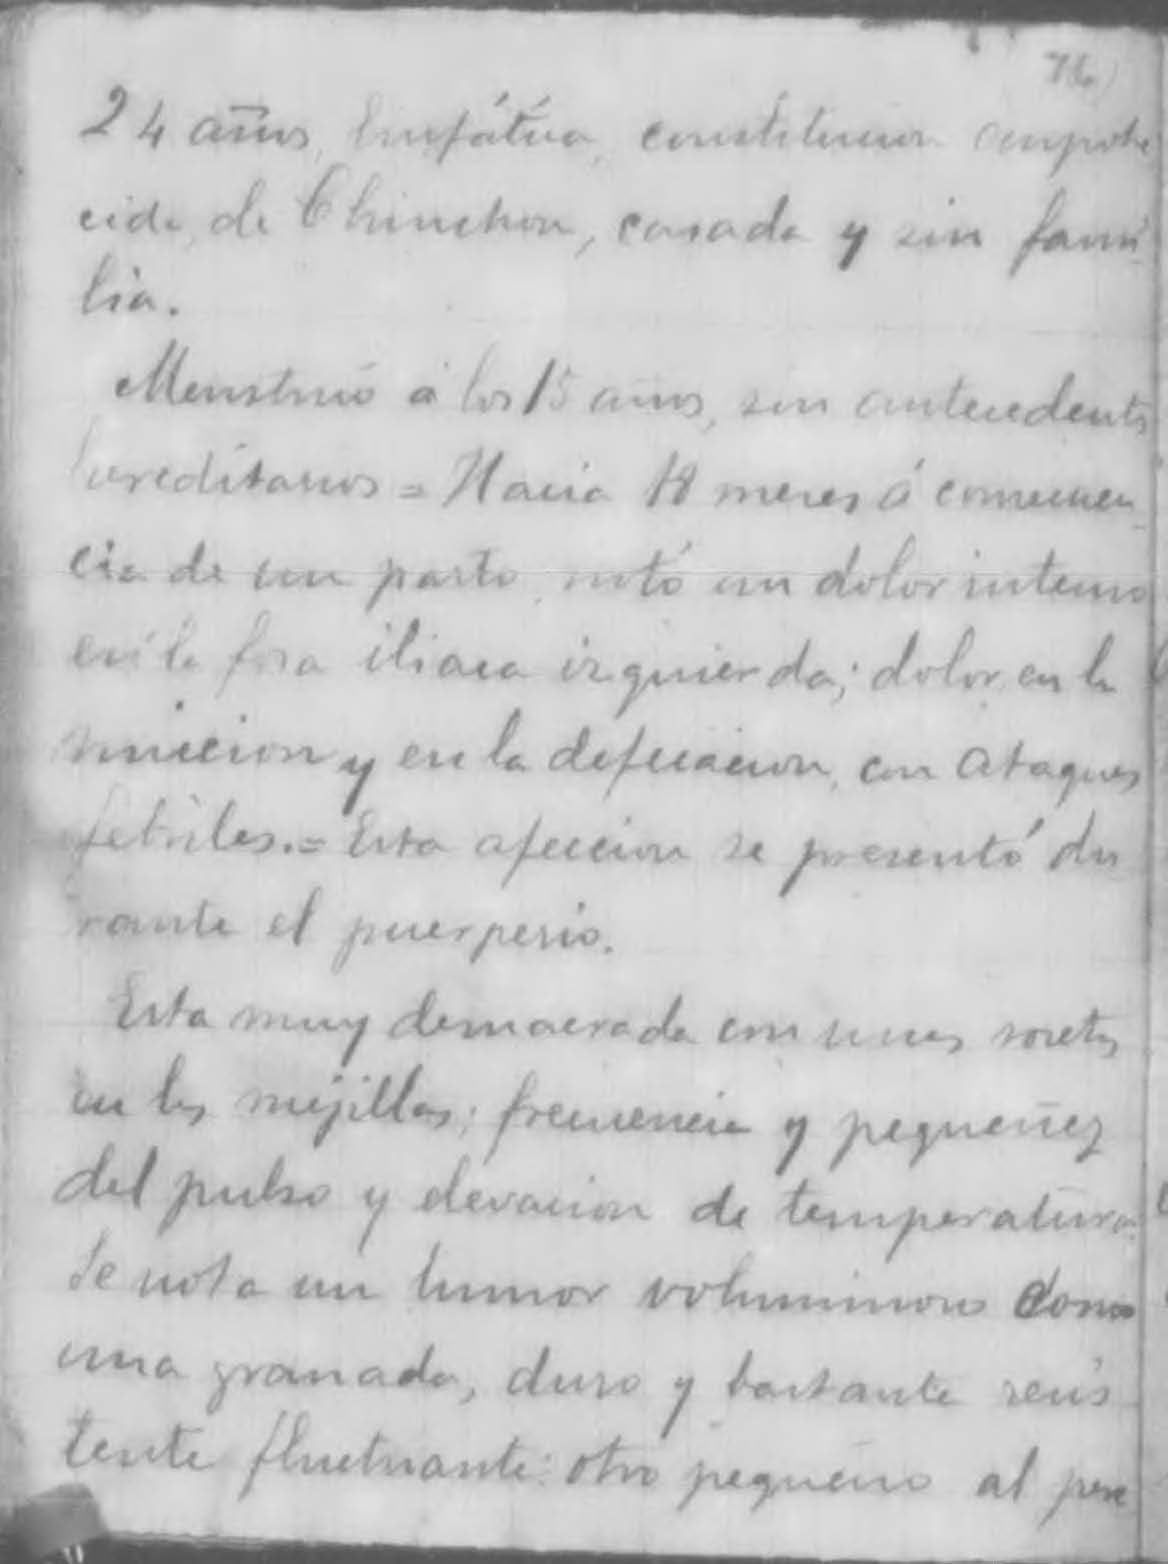 24 años, linfática, constitucion empobre
cida, de Chinchon, casada y sin fami
lia.
Menstruó á los 15 años, sin antecedentes
hereditarios = Hacia 18 meses á consecuen
cia de un parto, notó un dolor intenso
en la fosa iliaca izquierda; dolor en la
miccion y en la defecacion, con ataques
febriles. = Esta afeccion se presentó du
rante el puerperio.
Esta muy demacrada con unas rosetas
en las mejillas; frecuencia y pequeñez
del pulso y elevacion de temperatura.
Se nota un tumor voluminoso como
una granada, duro y bastante resis
tente fluctuante: otro pequeño al